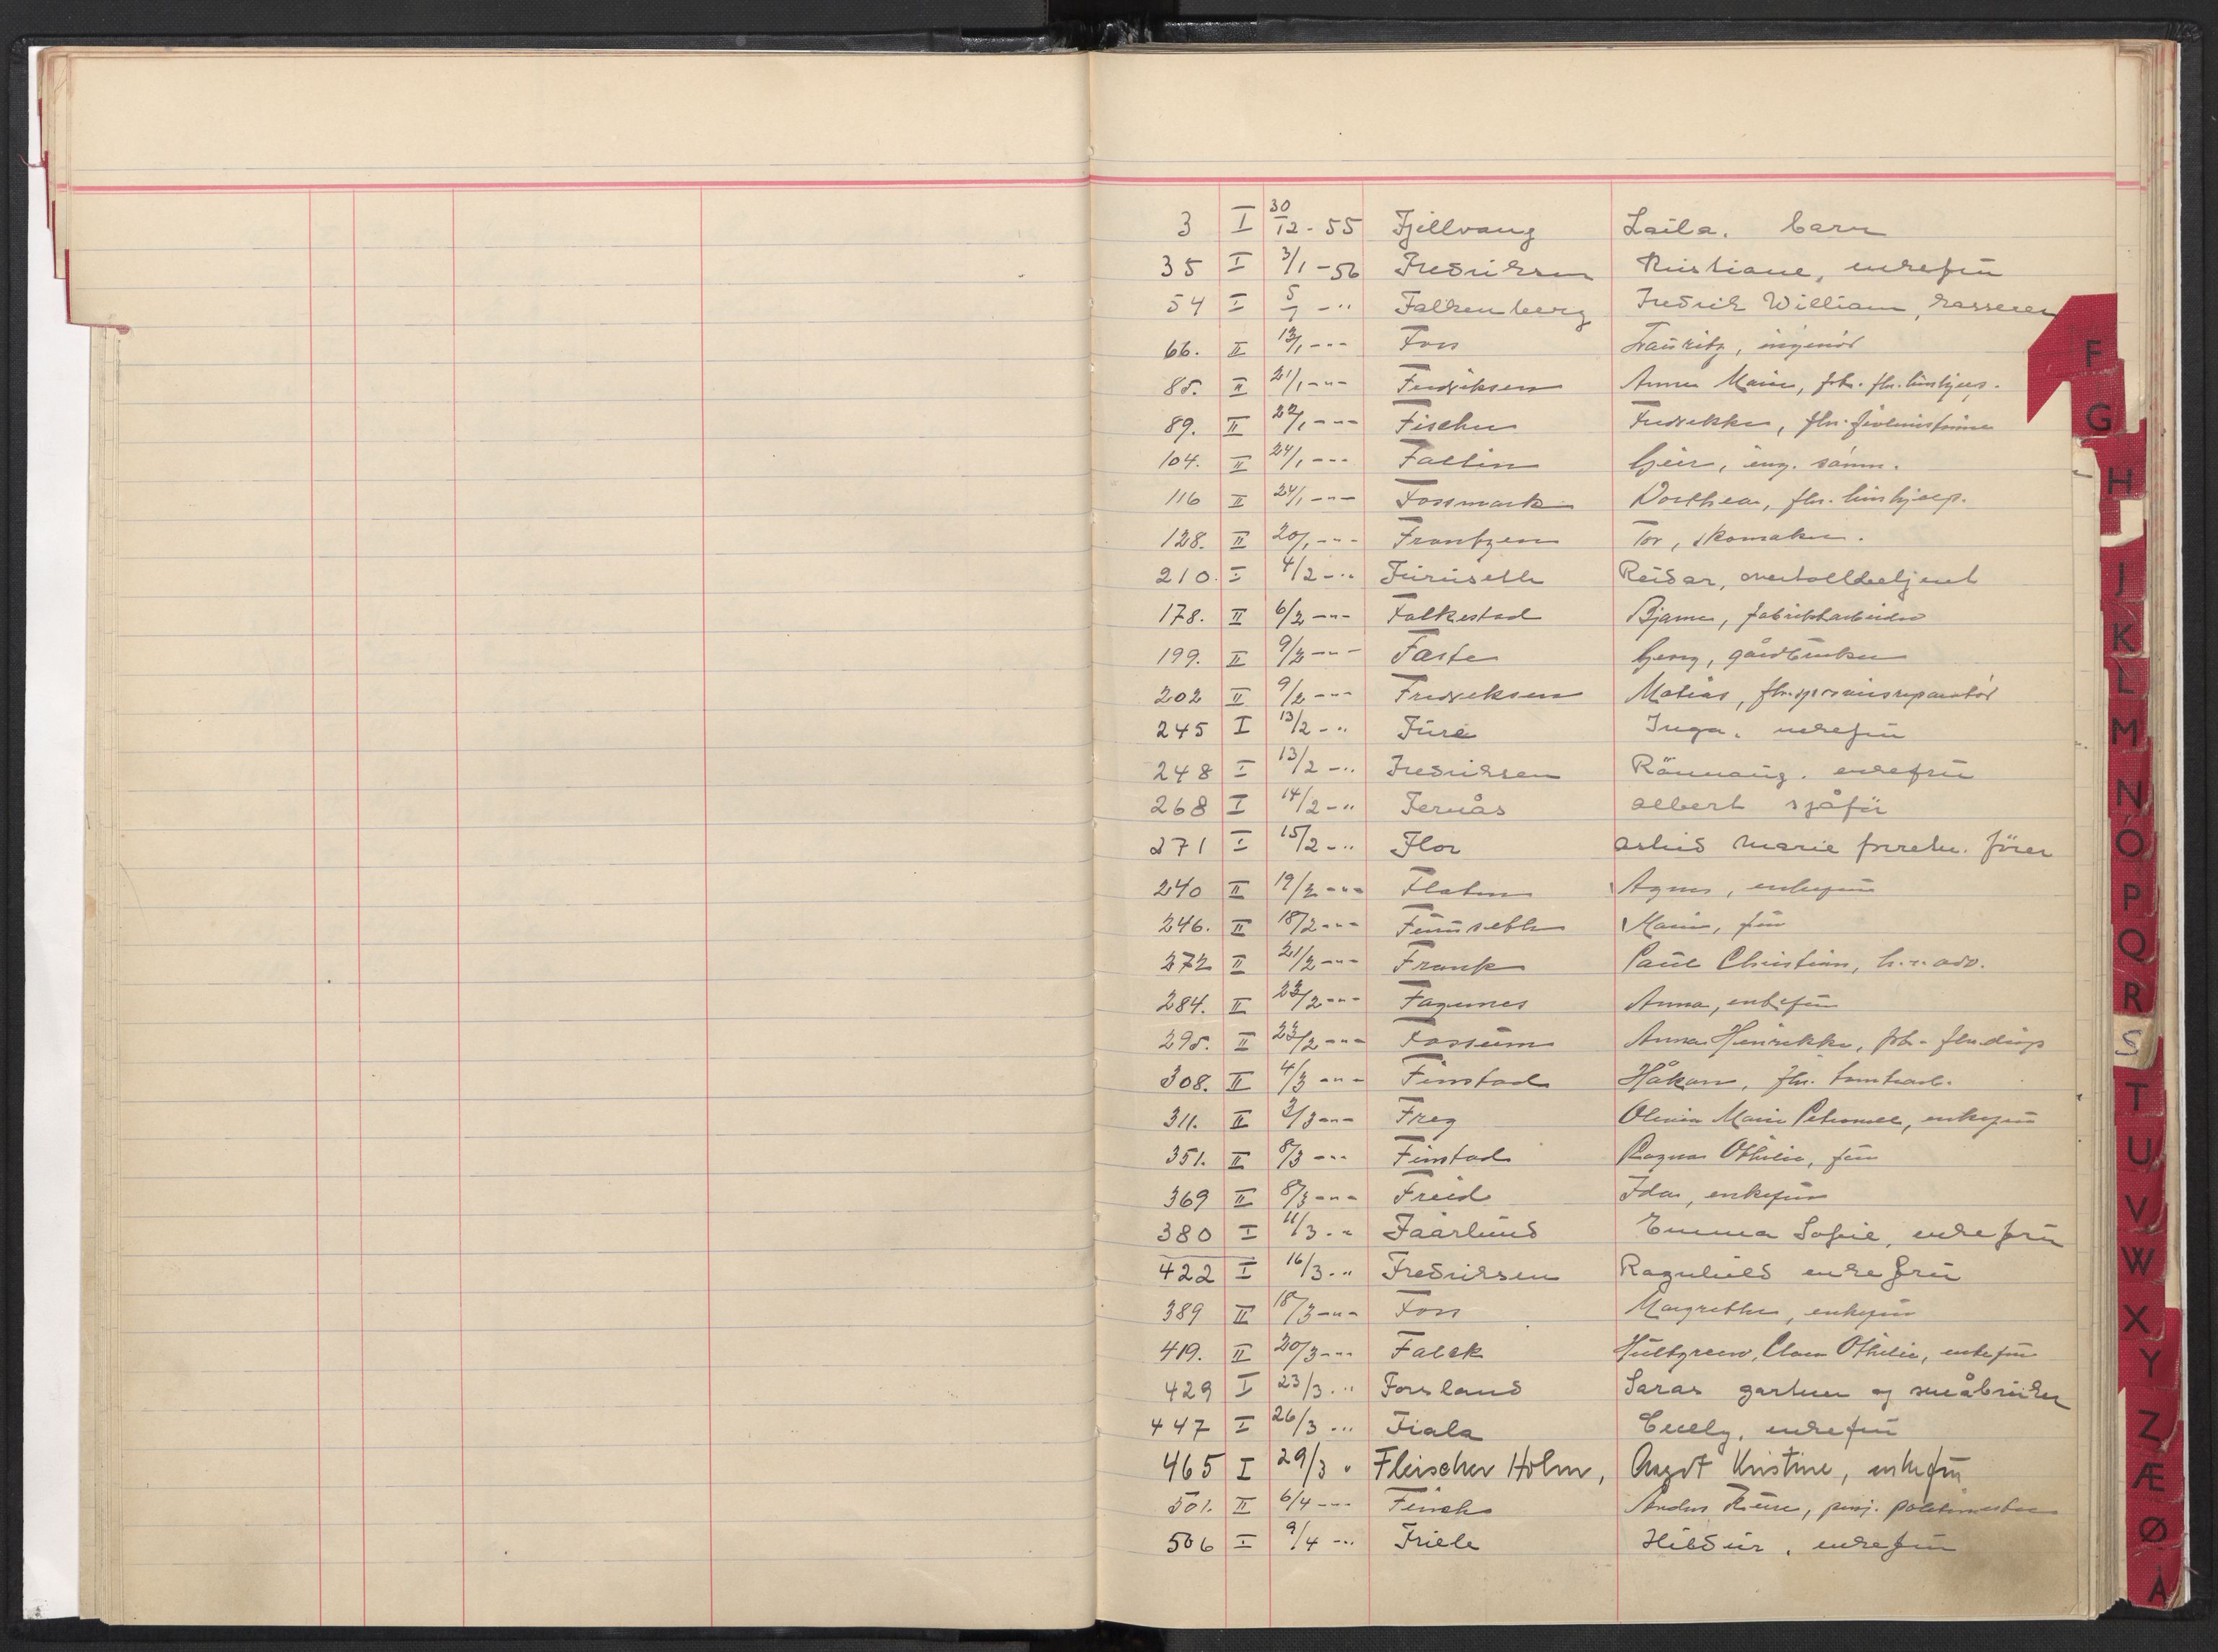 3 I 30/12 - 55 Fjellvang Laila. barn
35 I 3/1 - 56 Fredriksen Kristiane, enkefrü
54 I 5/1 - " Falkenberg Fredrik William, kasserer
66. II 13/1 - " - Foss Lauritz, ingeniör
85. II 21/1 - " - Fredriksen Anna Marie, frk. fhv. hüshjelp.
89. II 22/1 - " - Fischer Fredrikke, fhv.
104. II 24/1 - " - Faltin Geir, ing.
116 II 24/1 - " - Fossmark Dorthea, fhv. hüshjelp.
128. II 20/1 - " - Frantzen Tor, skomaker.
210. I 4/2 - " Fürüseth Reidar, overtollbetjent
178. II 6/2 - " - Falkestad Bjarne, fabrikkarbeider
199. II 9/2 - " - Faste Georg, gårdbrüker
202 II 9/2 - " - Fredriksen Matias,
245 I 13/2 - " Füre Inga. enkefrü
248 I 13/2 - " Fredriksen Rönnaüg. enkefrü
268 I 14/2 - " Fernås albert sjåför
271 I 15/2 - " Flor Marie forretn. förer
240 II 19/2 - " - Flaten Agnes, enkefrü
246. II 18/2 - " - Fürüseth Marie, frü
272 II 21/2 - " - Frank Paül Christian, h.r. adv.
284. II 23/2 - " - Fagernes Anna, enkefrü
295. II 23/2 - " - Fossüm Anna Henrikke, frk.
308. II 4/3 - " - Finstad Håkon, fhv.
311. II 3/3 - " - Frey Marie Petronelle, enkefrü
351. II 8/3 - " - Finstad Ragna Othilie, frü
369 II 8/3 - " - Freid Ida, enkefrü
380 I 11/3 - " Faarlünd Emma Sofie, enkefrü
422 I 16/3 - " Fredriksen Ragnhild enkefrü
389 II 18/3 - " - Foss Margrethe, enkefrü
419. II 20/3 - " - Falck Hültgreen, Clara Othilie, enkefrü
429 I 23/3 - " Forsland Saras gartner og småbrüker
447 I 26/3 - " Fiala Emely, enkefrü
465 I 29/3 " Fleischer Holm, Aagot Kristine, enkefrü
501. II 6/4 - " - Anders pensj. politimester
506 I 9/4 - " Friele Hildür. enkefrü
F
G
H
J
K
L
M
N
O
P
Q
R
S
T
U
V
W
X
Y
Z
Æ
Ø
Å